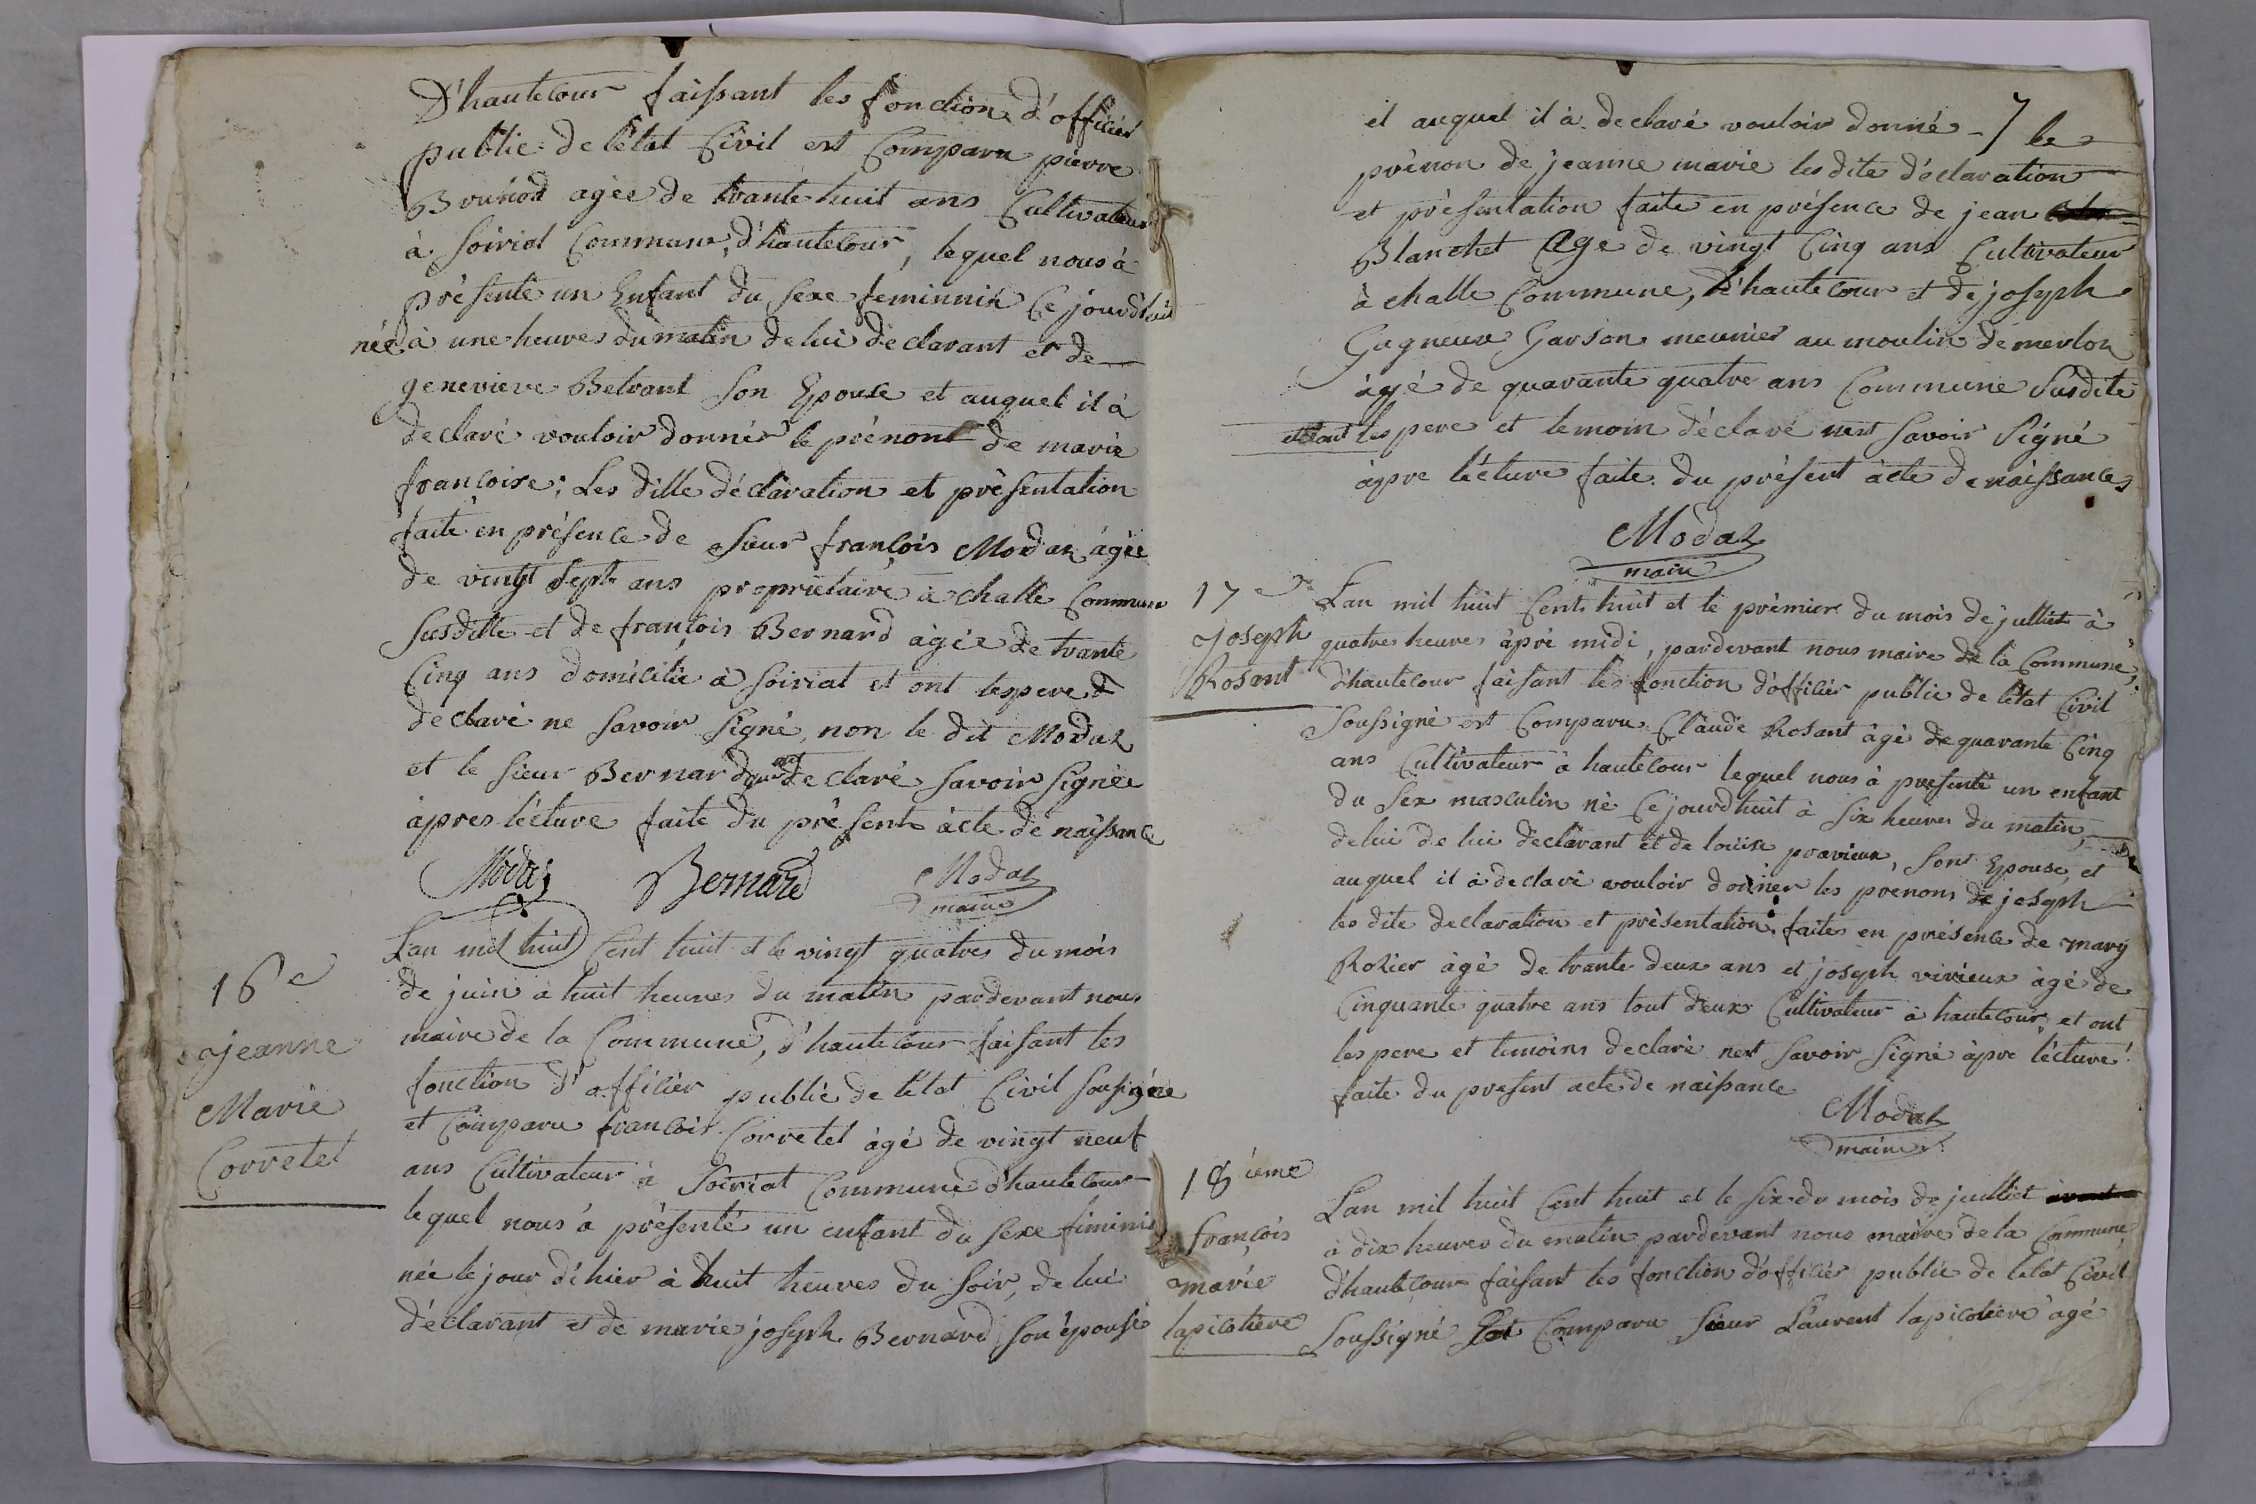 D'hautecour faisant les fonction d'officier
public de l'état Civil est Comparu pierre
Brunod agée de trante huit ans Cultivateur
à soiriat Commune, d'hautecour, lequel nous à
présenté un Enfant du sexe feminnin Ce jourd'hui
née à une heures du matin de lui déclarant et de
genevieve Beltrant son Epouse et auquel il à
declaré vouloir donnér le prénont de marie
francoise; Les ditte déclaration et présentation
faite en présence de sieur francois Modas agée
de vingt sept ans propriétaire à challe Commune
susditte et de francois Bernard agée de trante
Cinq ans domicilié à soiriat et ont les pere
declaré ne savoir signé, non le dit Modas
et le sieur Bernard qui ont declaré savoir signée
àpres lécture faite du présent àcte de naissance
Modas Bernard Modas
maire
16e
jeanne
Marie
Corretel
Lan mil huit Cent huit et le vingt quatres du mois
de juin à huit heures du matin pardevant nous
maire de la Commune, d'hautecour faisant les
fonction d'officier public de l'état Civil sousigée
et Comparu francois Corretel àgé de vingt neuf
ans Cultivateur à Soiriat Commune d'hautecour
lequel nous à présenté un enfant du sexe feminin
née le jour d'hier à huit heures du soir, de lui
déclarant et de marie joseph Bernard son épouse
7
et auquel il à declaré vouloir donné - le
prénon de jeanne marie les dite déclaration
et présentation faite en présence de jean
Blanchet Age de vingt Cinq ans Cultivateur
à challe Commune, d'hautecour et de joseph
Gagneux Garson meunier au moulin de merlon
àgé de quarante quatre ans Commune susdite
et ont les pere et temoin déclaré nent savoir signé
àpre lécture faite du présent àcte de naissance
Modas
maire
17e
Joseph
Rosant
Lan mil huit Cents huit et le prémier du mois de julliet à
quatres heures àpré midi, pardevant nous maire de la Commune,
d'hautecour faisant les fonction d'officiér public de létat Civil
soussigné est Comparu Claude Rosant àgé de quarante Cinq
ans Cultivateur à hautecour lequel nous à présenté un enfant
du sex masculin né Ce jourd'huit à six heures du matin,
de lui de lui déclarant et de louise pravieux, sont Epouse, et
auquel il à declaré vouloir donner les prénons de joseph
les dite declaration et présentation faites en présence de mary
Rozier àgé de trante deux ans et joseph vivieux àgé de
Cinquante quatre ans tout deux Cultivateur à hautecour, et ont
les pere et temoins declaré nent savoir signé àpre lécture
faite du présent acte de naissance
Modas
maire
18ieme
françois
marie
lapicotiere
Lan mil huit Cent huit et le six du mois de juilliet
à dix heures du matin pardevant nous maire de la Commune
d'hautecour faisant les fonction d'officiér public de létat Civil
soussigné Est Comparu sieur Laurent lapicotiere àgé